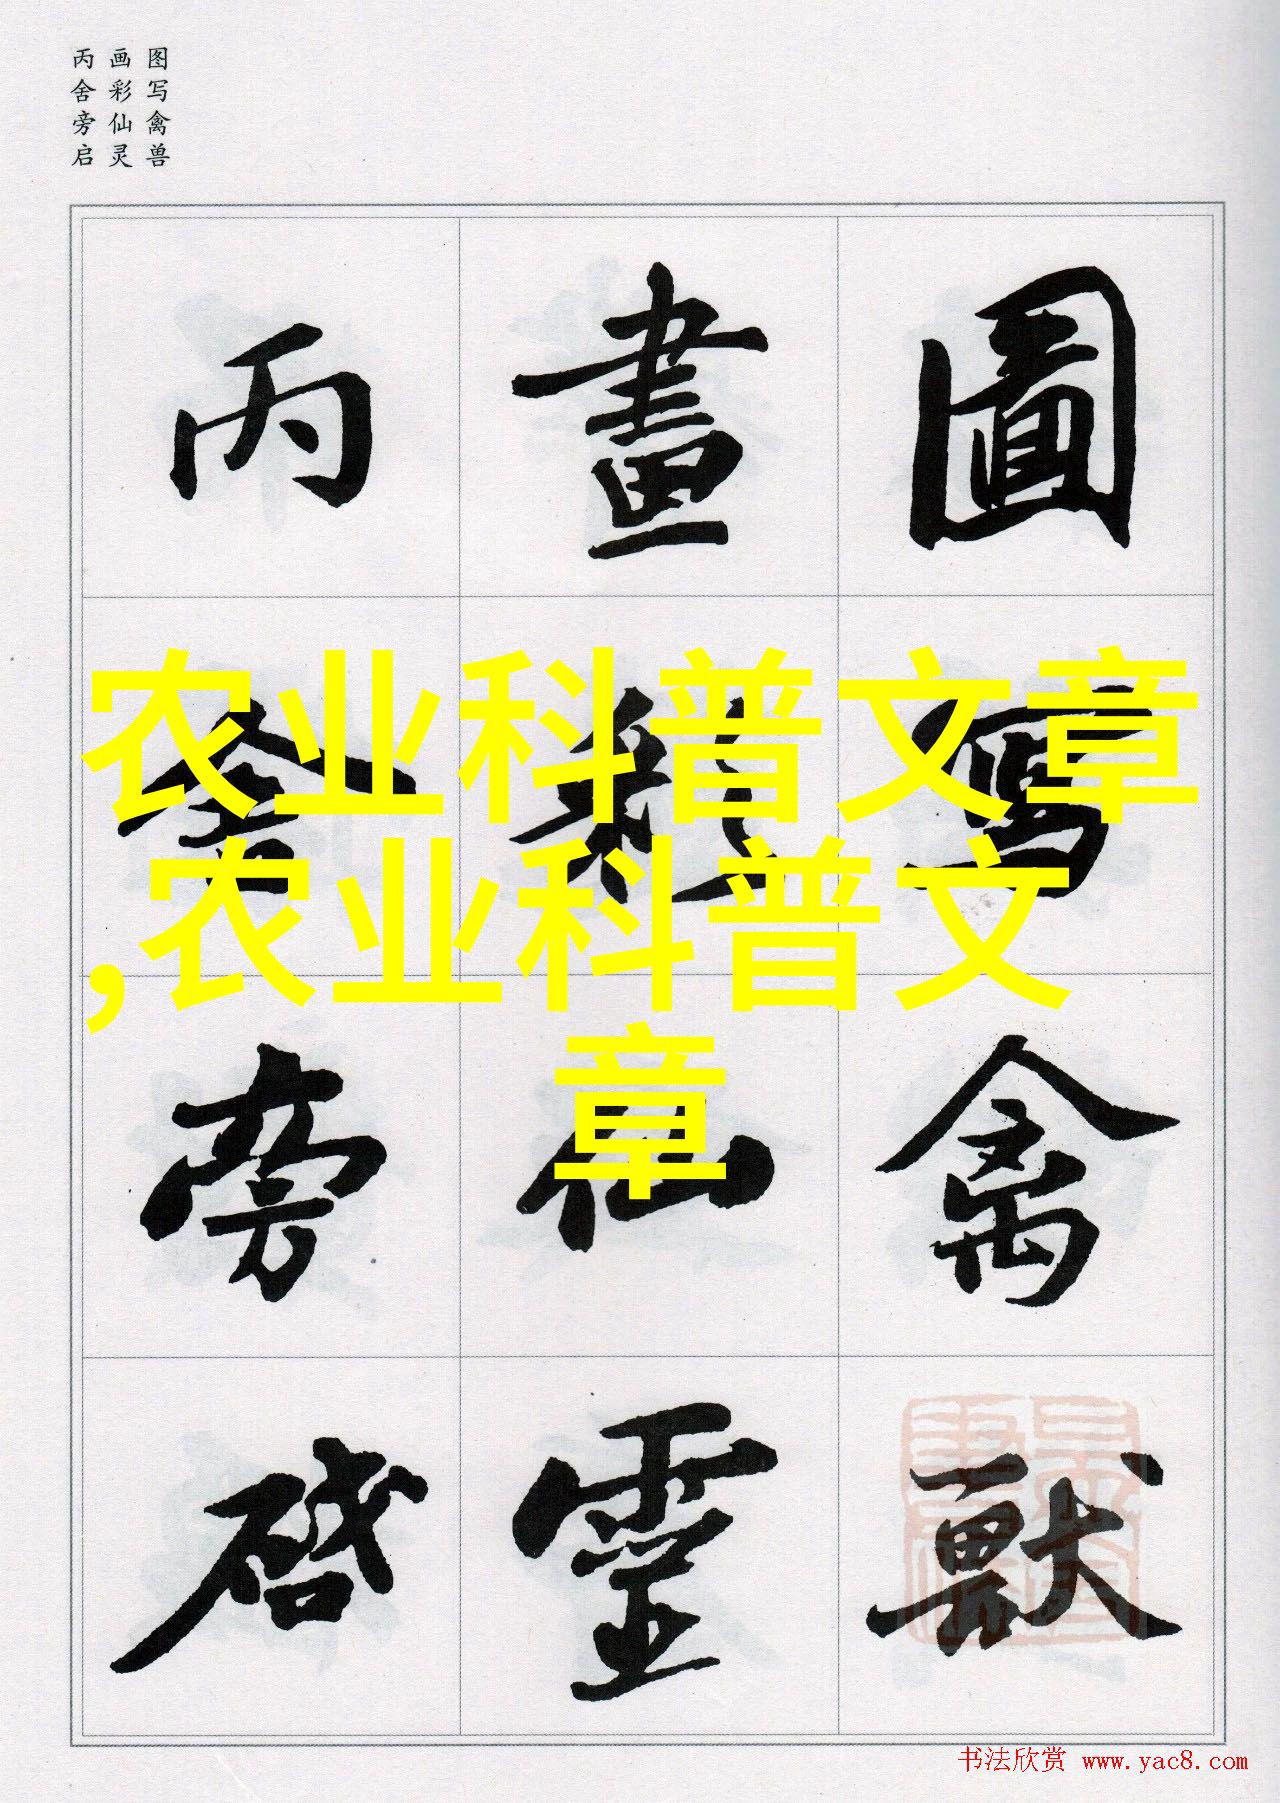 图写禽兽
画彩仙灵
丙舍旁启
圖寫禽獸
畫彩仙靈
丙舍旁啓
农业科普文章
,农业科普文
章
书法欣赏 www.yac8.com